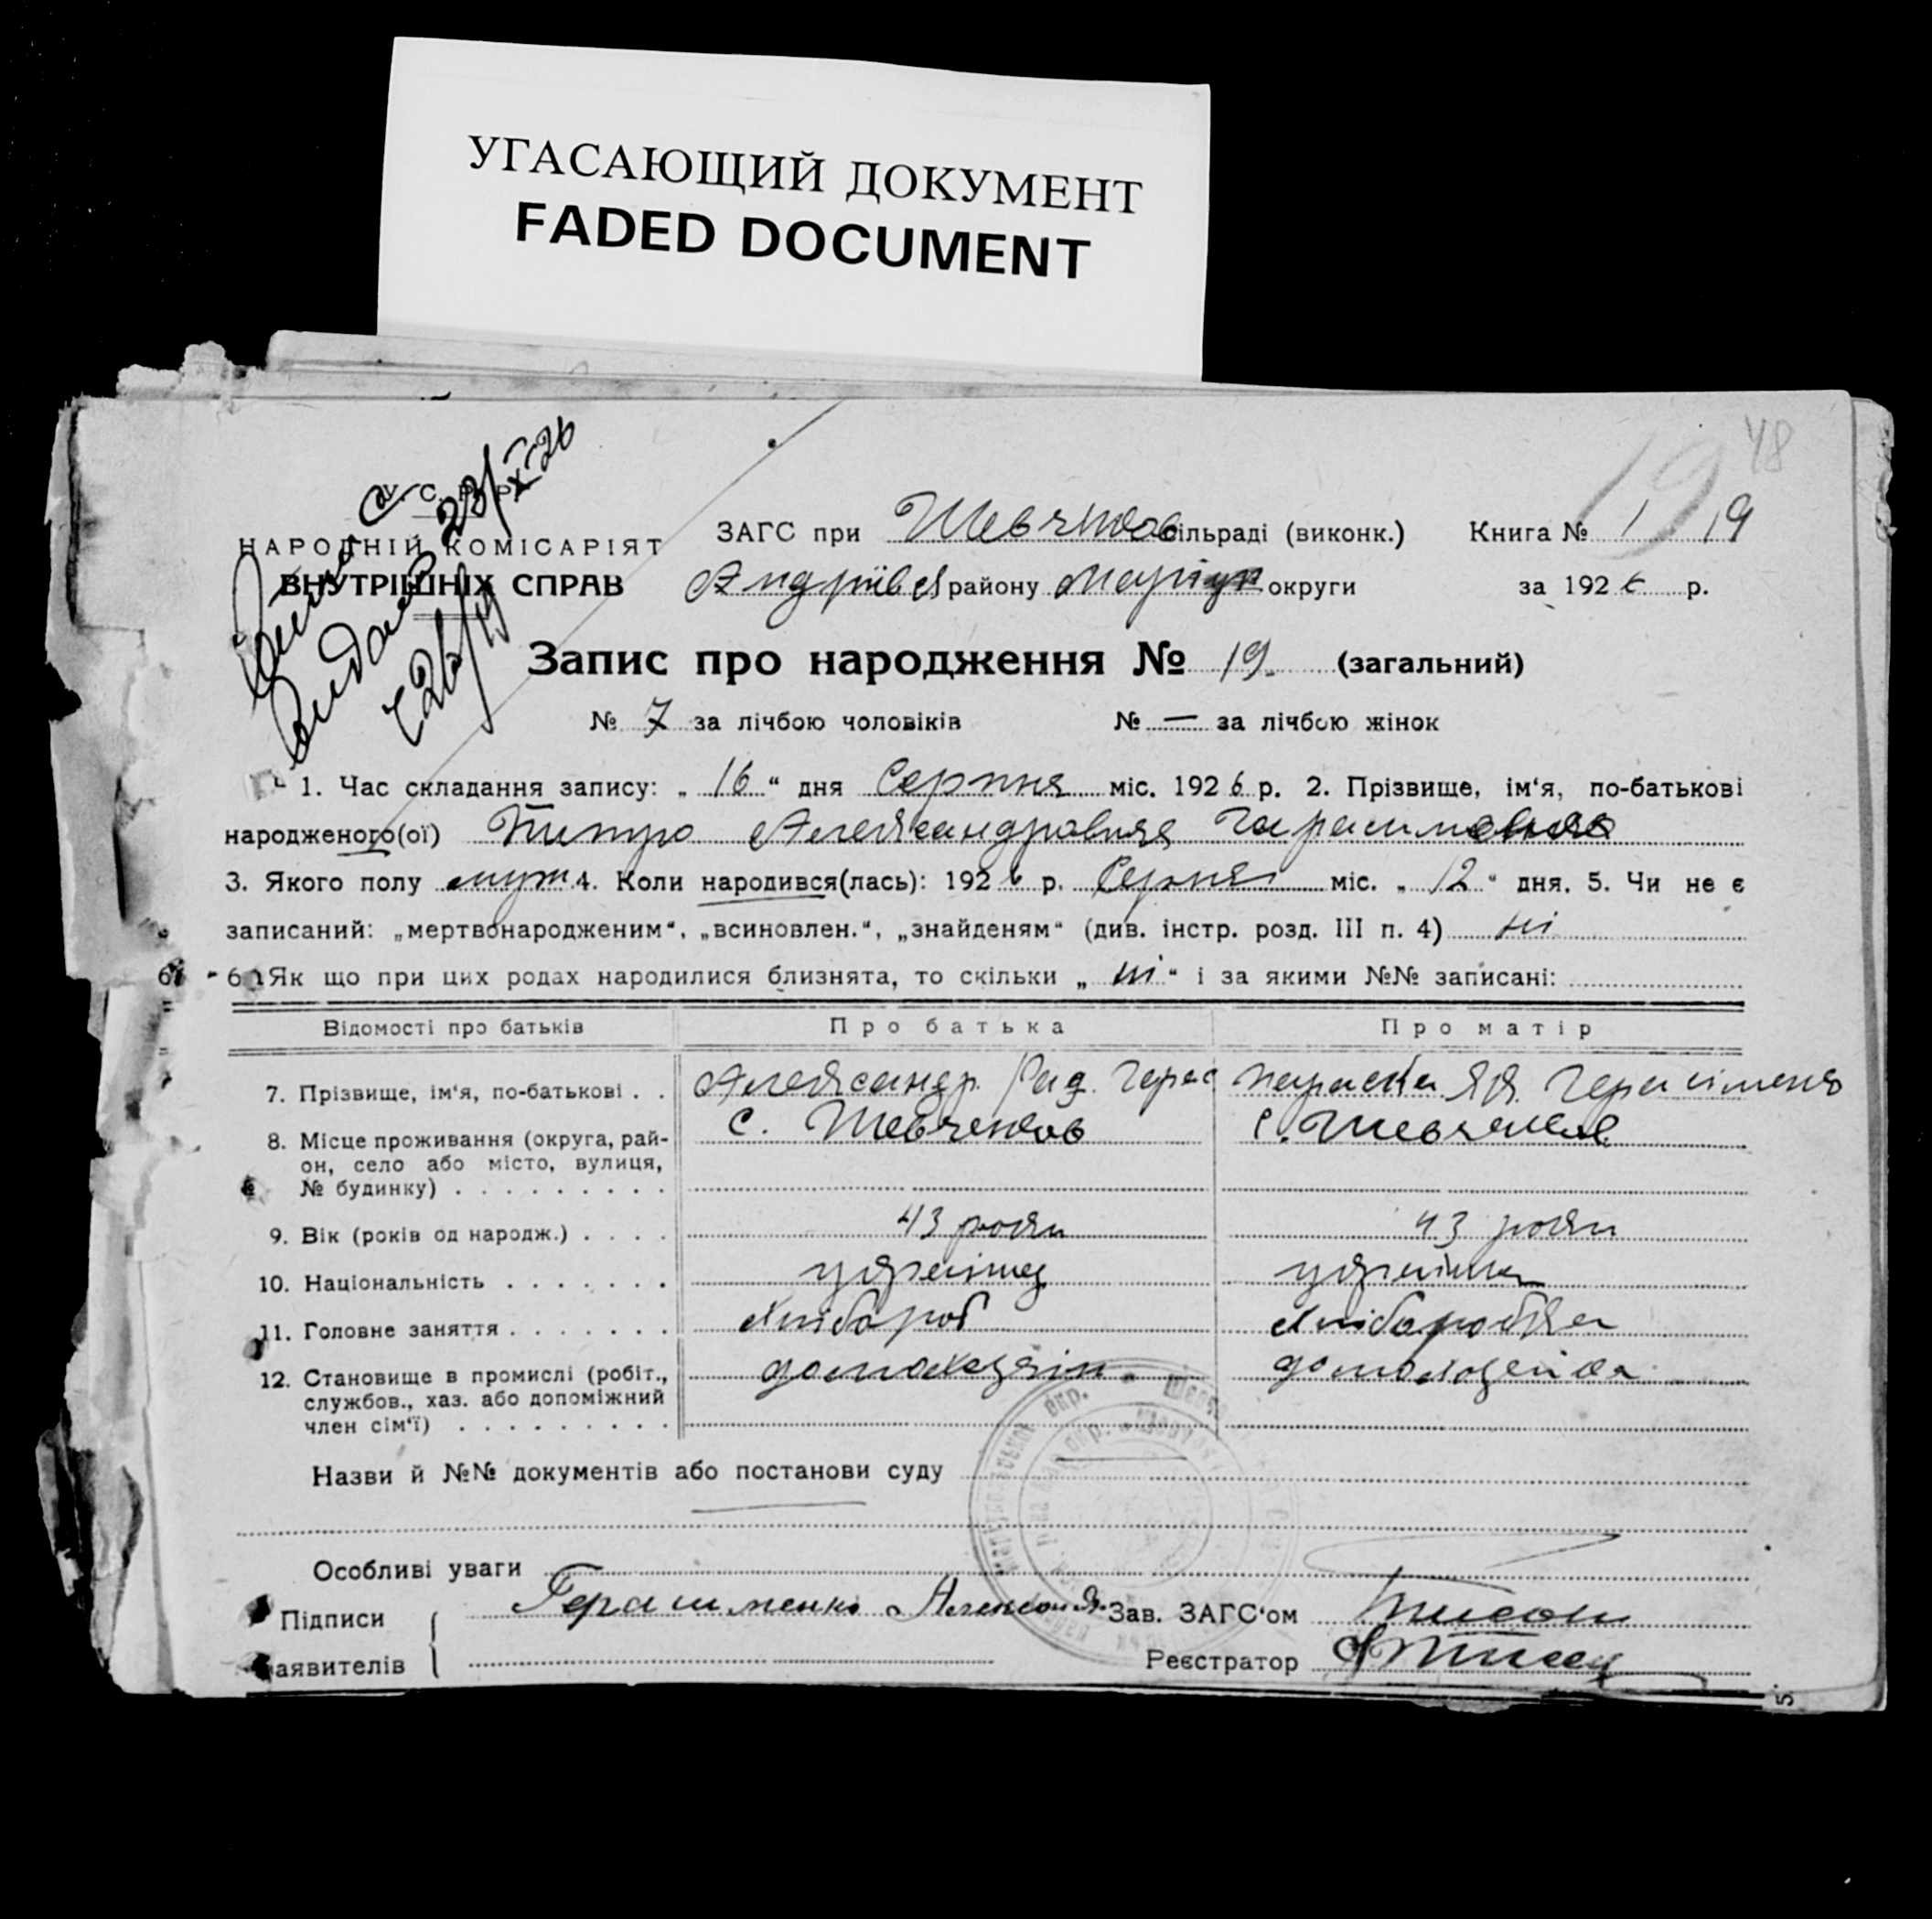 УГАСАЮЩИЙ ДОКУМЕНТ
FADED DOCUMENT
48
19
У. С. Р. Р.
НАРОДНІЙ КОМІСАРІЯТ
ВНУТРІШНІХ СПРАВ
23/IX-26
ЗАГС при Шевченков сільраді (виконк.) Книга № 1 19
Андріївск району Маріуп округи за 1926 р.
Запис про народження № 19. (загальний)
№ 7 за лічбою чоловіків № — за лічбою жінок
1. Час складання запису: „ 16 “ дня Серпня міс. 1926 р. 2. Прізвище, ім‘я, по-батькові
народженого(ої)
3. Якого полу муж 4. Коли народився(лась): 1926 р. Серпня міс. „ 12 “ дня. 5. Чи не є
записаний: „мертвонародженим“, „всиновлен.“, „знайденям“ (див. інстр. розд. III п. 4) ні
6. Як що при цих родах народилися близнята, то скільки „ ні “ і за якими №№ записані:
Відомості про батьків Про батька Про матір
7. Прізвище, ім‘я, по-батькові . . Александр. Гарас Параска Герасіменко
8. Місце проживання (округа, рай- с. Шевченков с. Шевченков
он, село або місто, вулиця,
№ будинку) . . . . . . . . .
9. Вік (років од народж.) . . . . 43 роки 43 роки
10. Національність . . . . . . . українец українка
11. Головне заняття . . . . . . . хлібороб хліборобка
12. Становище в промислі (робіт., домохазяін домохазяйка
службов., хаз. або допоміжний
член сім‘ї) . . . . . . . . .
Назви й №№ документів або постанови суду
Особливі уваги
Підписи Герасименко Зав. ЗАГС‘ом
Заявителів Реєстратор
5.